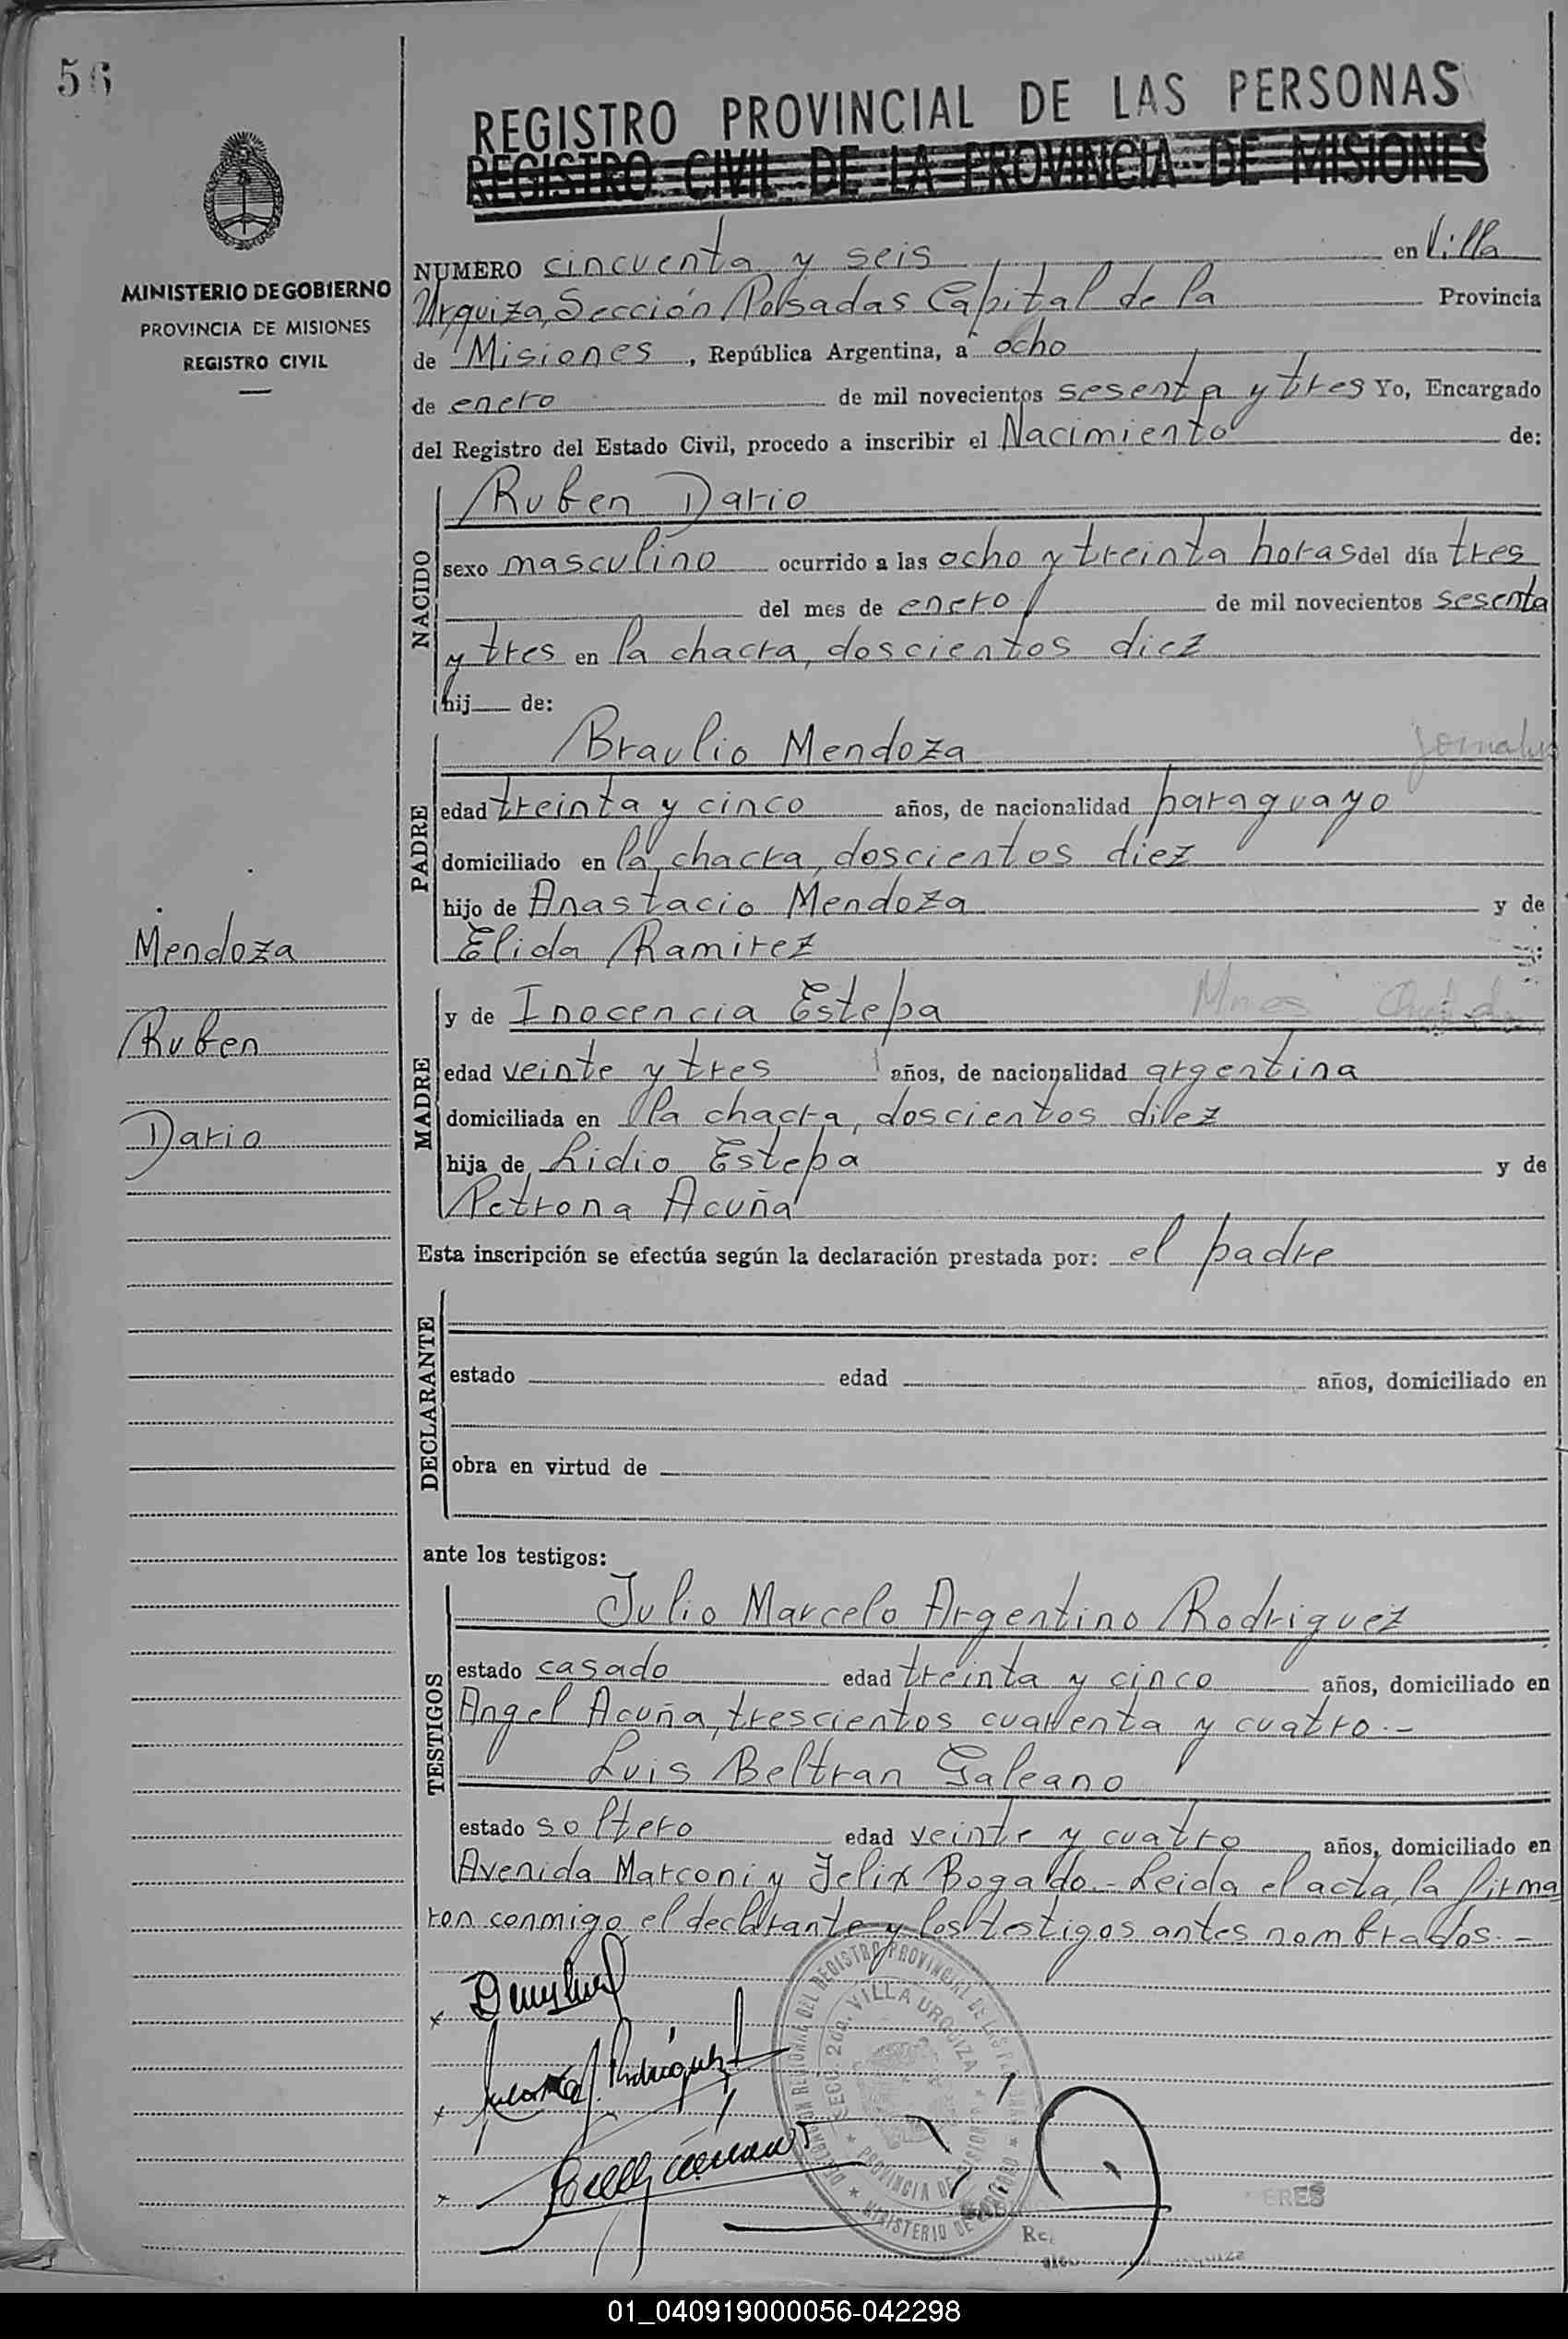 56
REGISTRO PROVINCIAL DE LAS PERSONAS
REGISTRO CIVIL DE LA PROVINCIA DE MISIONES
MINISTERIO DE GOBIERNO
PROVINCIA DE MISIONES
REGISTRO CIVIL
NUMERO cincuenta y seis en Villa
Urquiza, Sección Posadas Capital de la Provincia
de Misiones, República Argentina, a ocho
de enero de mil novecientos sesenta y tres Yo, Encargado
del Registro del Estado Civil, procedo a inscribir el Nacimiento de:
NACIDO
Ruben Dario
sexo masculino ocurrido a las ocho y treinta horas del día tres
del mes de enero de mil novecientos sesenta
y tres en la chacra, doscientos diez
hij de:
PADRE
Braulio Mendoza
edad treinta y cinco años, de nacionalidad paraguayo
domiciliado en la chacra, doscientos diez
hijo de Anastacio Mendoza y de
Elida Ramirez
MADRE
y de Inocencia Estepa
edad veinte y tres años, de nacionalidad argentina
domiciliada en la chacra, doscientos diez
hija de Lidio Estepa y de
Petrona Acuña
Mendoza
Ruben
Dario
Esta inscripción se efectúa según la declaración prestada por: el padre
DECLARANTE
estado edad años, domiciliado en
obra en virtud de
ante los testigos:
TESTIGOS
Julio Marcelo Argentino Rodriguez
estado casado edad treinta y cinco años, domiciliado en
Angel Acuña, trescientos cuarenta y cuatro.-
Luis Beltran Galeano
estado soltero edad veinte y cuatro años, domiciliado en
Avenida Marconi y Felix Bogado.- Leida el acta, la firma
ron conmigo el declarante y los testigos antes nombrados.-
SECC. 2da. VILLA URQUIZA
PROVINCIA DE MISIONES
MINISTERIO DE GOBIERNO
01_040919000056-042298